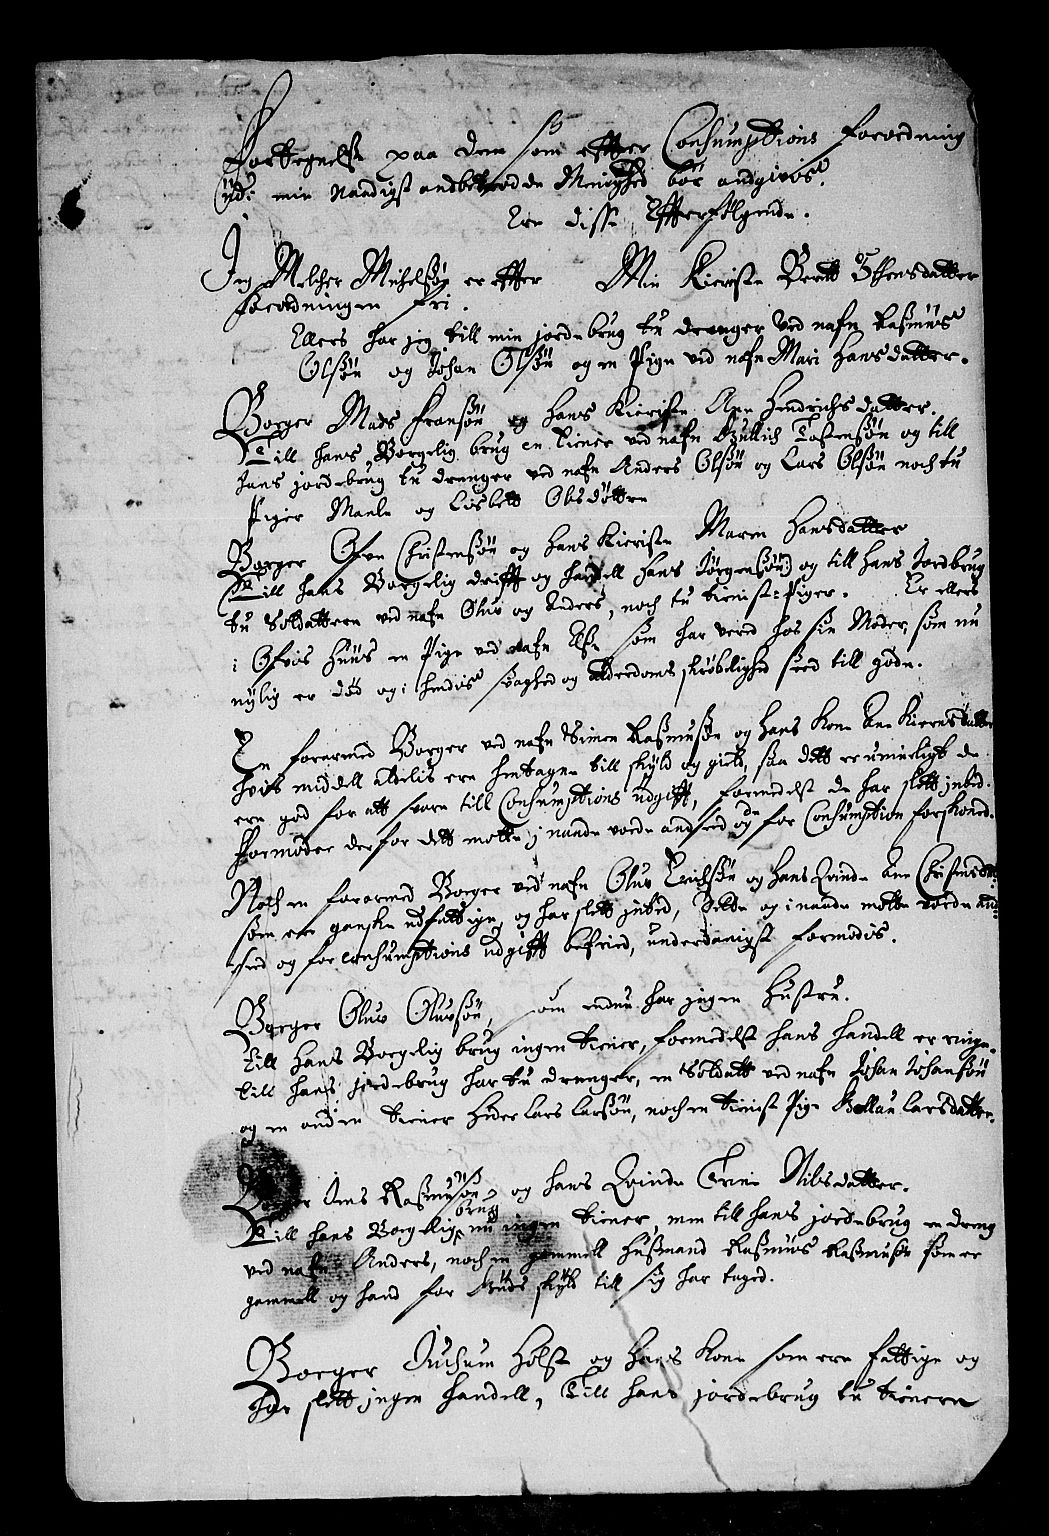 Fortegnelse paa dem som effter Consumptions forordning
udi min naadigst anbetrodde Menighed bør angivis.
Ere disse Effterfølgende.
Jeg Melcher Michelsøn er effter Min Kieriste Berett Steensdatter
forordningen frj.
Ellers har jeg till min jordebrug tu drenger ved nafn Rasmus
Olssøn og Johan Olssøn og en Pige ved nafn Mari Hansdatter.
Borger Mads Fransøn og hans Kieriste Ane Hendrichsdatter.
Till hans Borgelig brug en tiener ved nafn Gullich Tostensøn og till
hans jordebrug tu drenger ved nafn Anders Olssøn og Lars Olssøn noch tu
Piger Maale og Lisbett Olsdøttre
Borger Ofve Christensøn og hans Kieriste Maren Hansdatter
Till hans Borgelig drifft og handell Hans Jørgensøn og till hans Jordbrug
tu Soldattere ved nafn Oluv og Anders, noch tu tieniste Piger. Er ellers
i Ofves huus en Pige ved nafn Else som har vered hos sin Moder, som nu
nylig er død og i hendis svaghed og alderdoms skrøbelighed seed till gode.
En forarmed Borger ved nafn Simen Rasmussøn og hans Kone Ane Kierstensdatter
hvis middell aldelis ere hentagne till skyld og gield, saa dett er umueligt de
ere god for att svare till Consumptions udgifft, formedelst de har slett inted.
Formoder derfor dett motte j naade vorde anseed og de for Consumption forskoned.
Noch en forarmed Borger ved nafn Oluv Erichsøn og hans Qvinde Ane Christensdatter
som ere ganske udfattige og har slett inted, Bede og i naade motte vorde an-
seed og for consumptions udgifft befried, underdanigst formodis.
Borger Oluv Oluvsøn, som endnu har ingen Hustru.
Till hans Borgelig brug ingen tiener, formedelst hans handell er ringe.
till hans jordebrug har tu drenger, en Soldatt ved nafn Johan Johansøn
og en anden tiener heder Lars Larsøn, noch en tieniste Pige Larsdatter.
Borger Jens Rasmusøn og hans Qvinde Trine Nilsdatter.
Till hans Borgelig brug nu ingen tiener, men till hans jordebrug en dreng
ved nafn Anders, noch en gammell husmand Rasmus Rasmusøn som er
gammell og hand for Guds skyld till sig har taged.
Borger Juchum Holst og hans Kone som ere fattige og
har slett ingen handell, Till hans jordebrug tu tienere